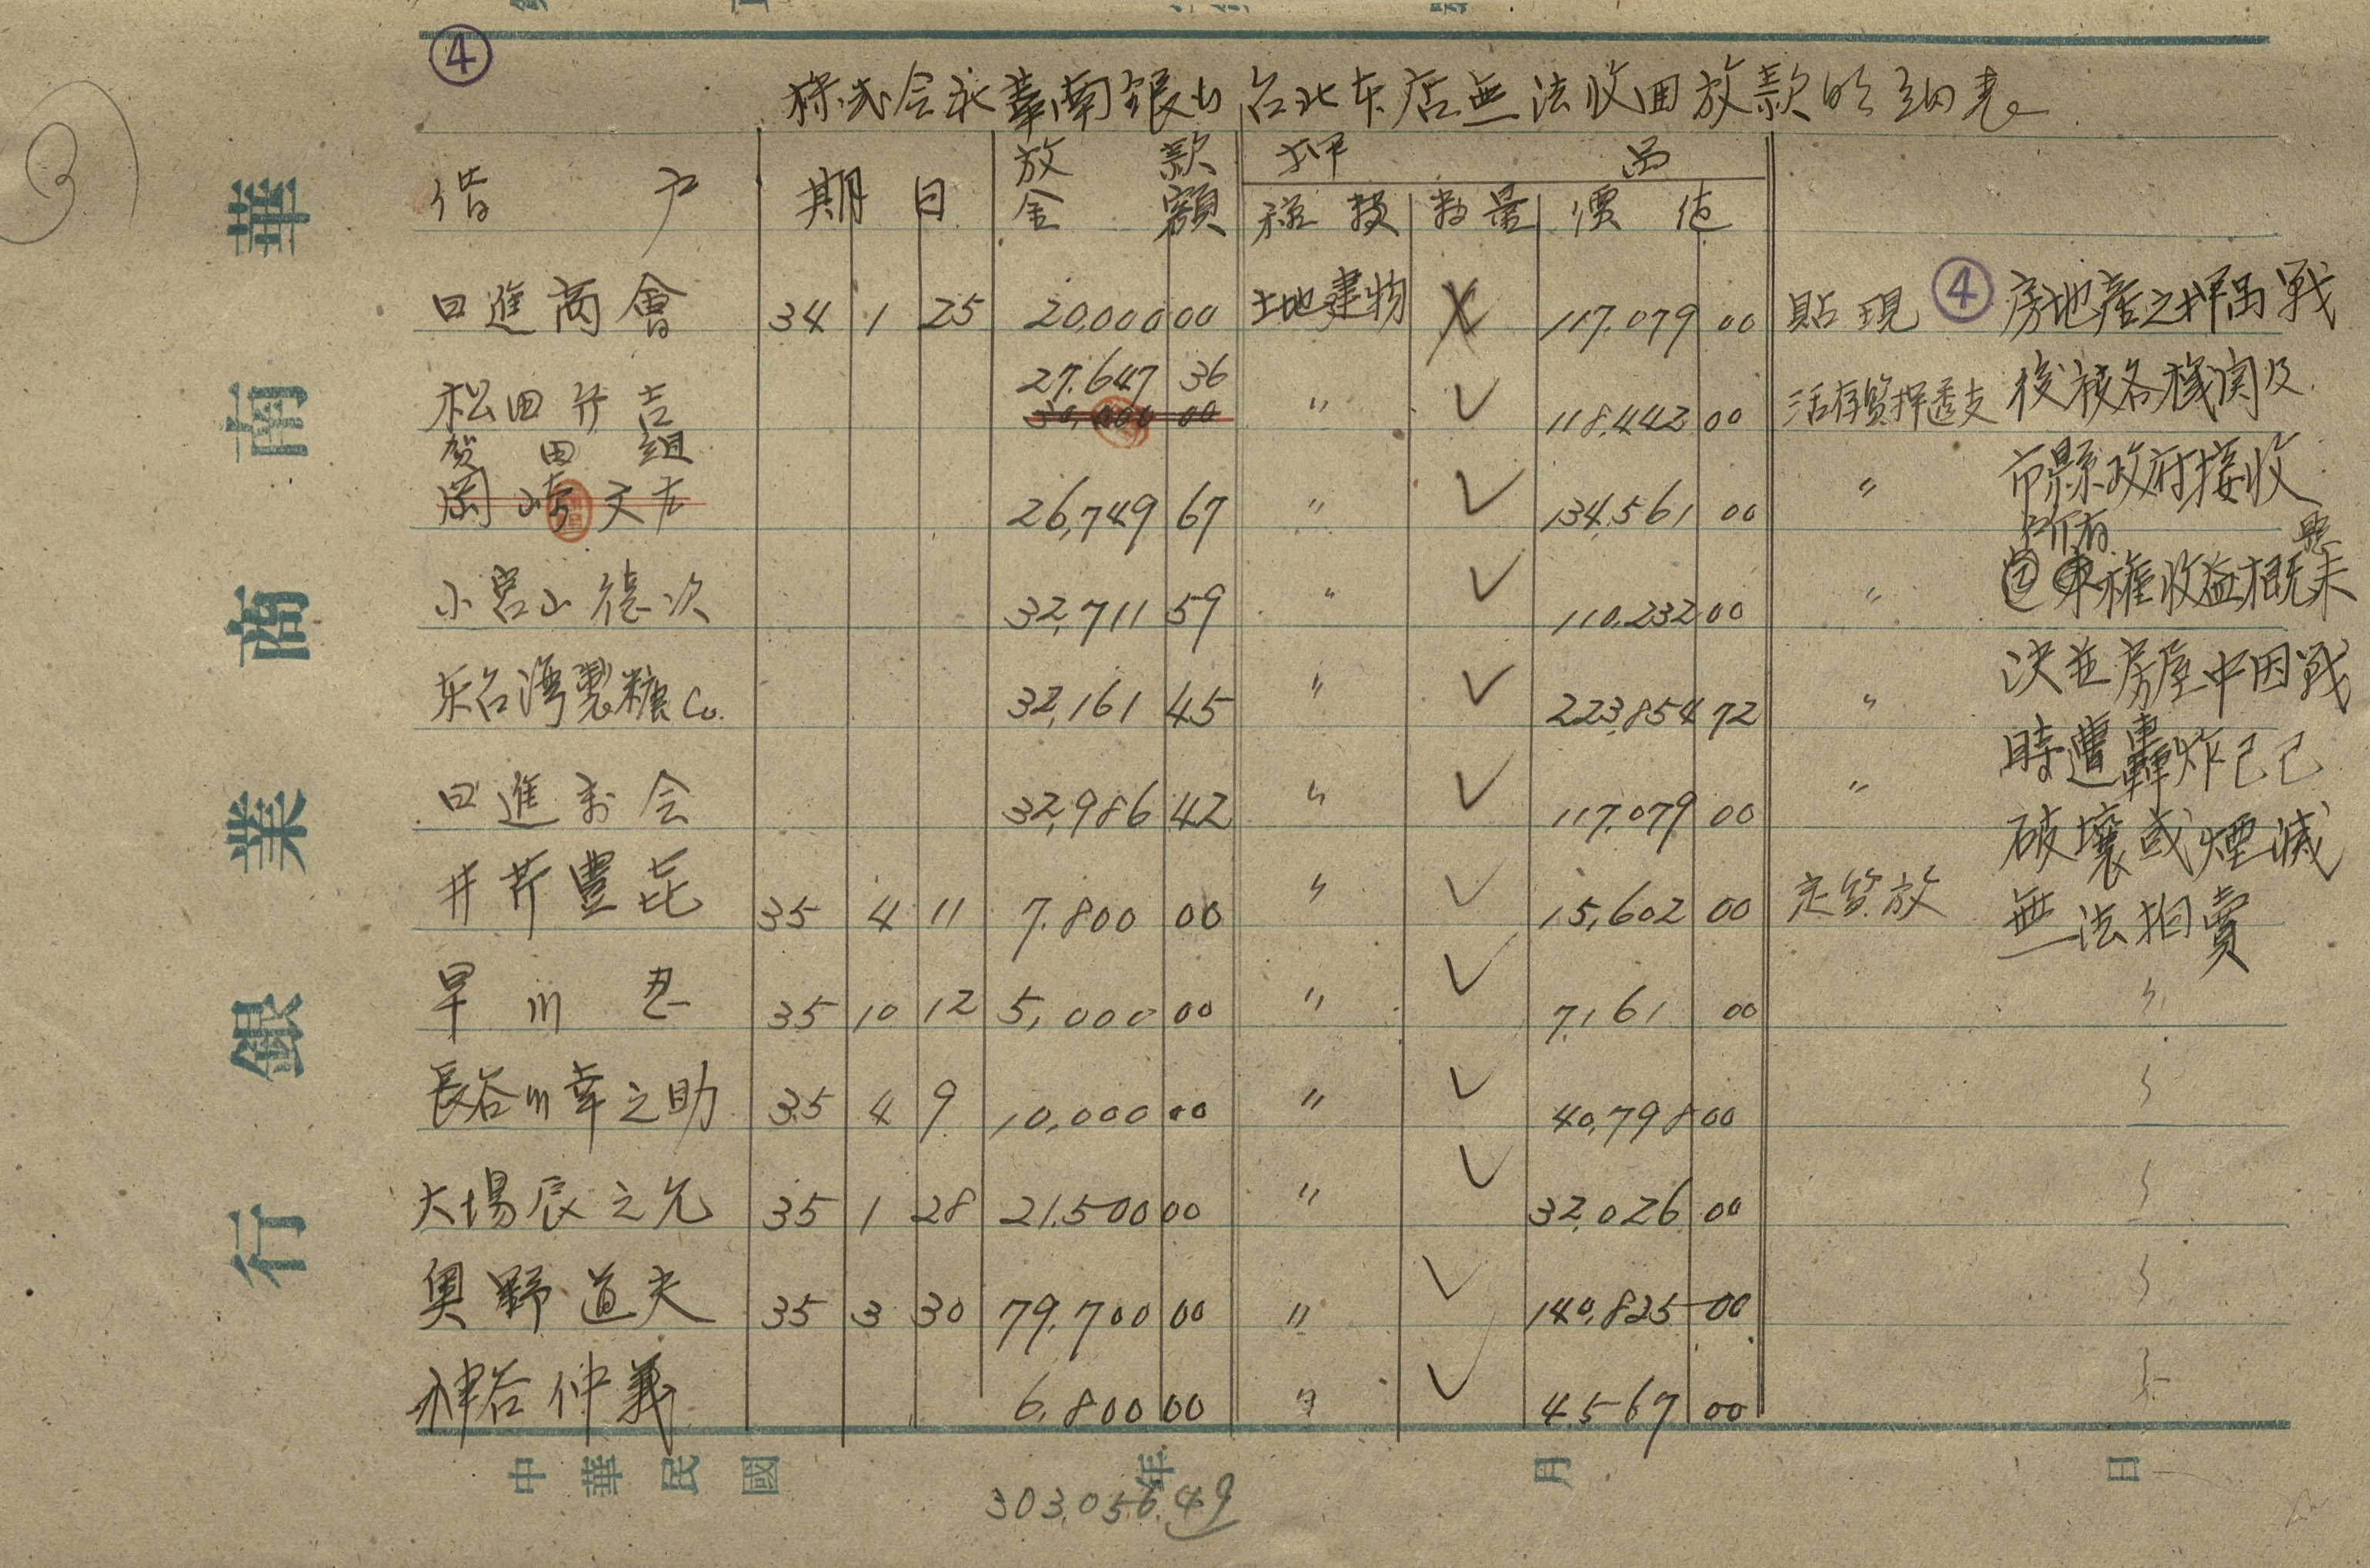 ④
株式会社華南銀行台北支店無法收回放款明細表
借戶 期日 放款金額 押品
種類 数量 價值
日進商會 34 1 25 20,000 00 土地建物 117,079 00 貼現
④ 房地產之押品戰
後被各機関及
市縣政府接收
所有權收益概未
決並房屋中因戰
時遭轟炸已已
破壞或煙滅
無法拍賣
松田芥吉 27,647 36 〃 ✓ 118,442 00 活存質押透支
30,000 00
賀田組 26,749 67 〃 ✓ 134,561 00 〃
岡崎
小宮山德次 32,711 59 〃 ✓ 110,232 00 〃
东台灣製糖Co. 32,161 45 〃 ✓ 223,854 72 〃
日進商会 32,986 42 〃 ✓ 117,079 00 〃
井芹豊㐂 35 4 11 7,800 00 〃 ✓ 15,602 00 定質放
早川忍 35 10 12 5,000 00 〃 ✓ 7,161 00 〃
長谷川幸之助 35 4 9 10,000 00 〃 ✓ 40,798 00
大場辰之允 35 1 28 21,500 00 〃 ✓ 32,026 00
奥野道夫 35 3 30 79,700 00 〃 ✓ 140,825 00
神谷仲義 6,800 00 〃 ✓ 4,567 00
中華民國 年 月 日
303,056.49
華南商業銀行
3